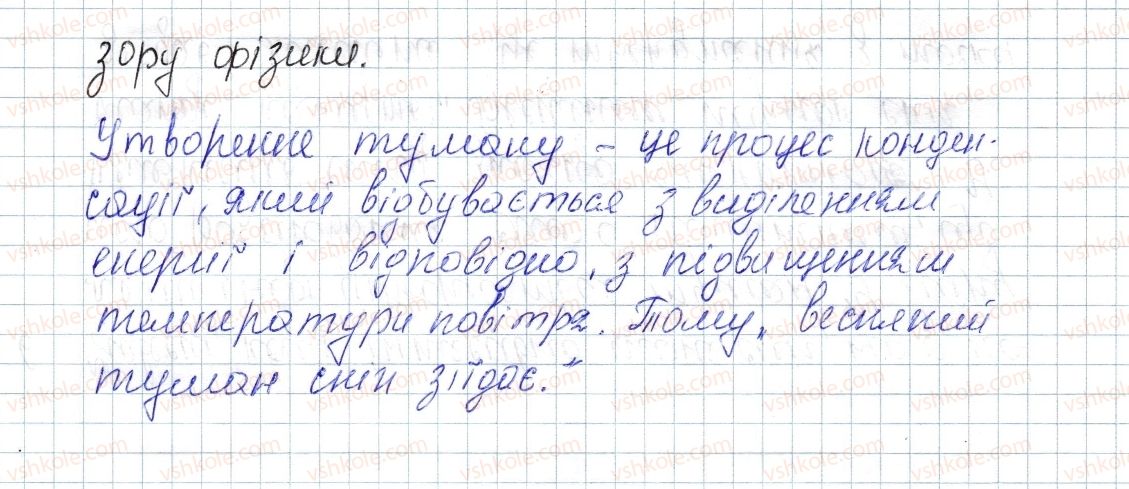 зору фізики.
Утворення туману – це процес конден-
сації, який відбувається з виділенням
енергії і відповідно, з підвищенням
температури повітря. Тому „весняний
туман сніг з'їдає."